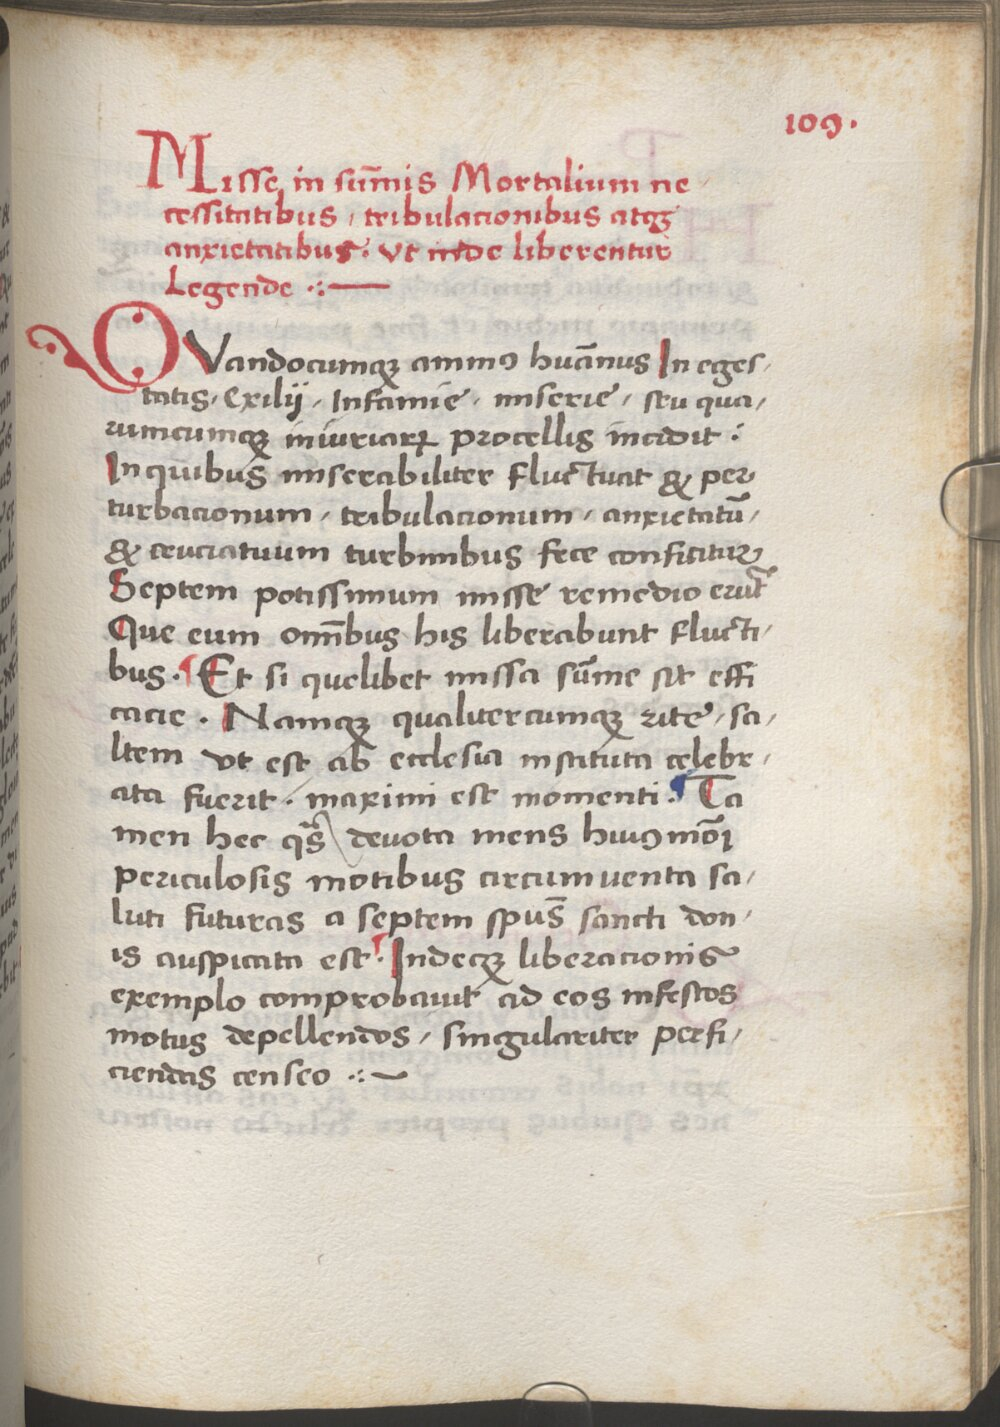 109.
Misse in sum̄is Mortalium ne
cessitatibus, tribulacionibus atqȝ
anxietatibus. vt inde liberentur
Legende .:—
QVandocumqȝ animꝰ huānus In eges,
tatis, exilij, Infamie, miserie, seu qua,
rumcumqȝ iniuriarꝝ procellis incidit :
In quibus miserabiliter fluctuat & per,
turbacionum, tribulacionum, anxietatū,
& cruciatuum turbinibus fere conficitur,
Septem potissimum misse remedio erūt
Que eum om̄ibus his liberabunt flucti,
bus. Et si quelibet missa sūme sit effi
cacie. Namqȝ qualitercumqȝ rite, sa,
ltem vt est ab ecclesia instituta celebr,
ata fuerit. maximi est momenti. Ta
men hec qᵃs devota mens huiꝰmōi
periculosis motibus circumuenta sa,
luti futuras a septem spūs sancti don,
is auspicata est. Indeqȝ liberacionis
exemplo comprobauit ad eos infestos
motus depellendos, singulariter perfi,
ciendas censeo .:~